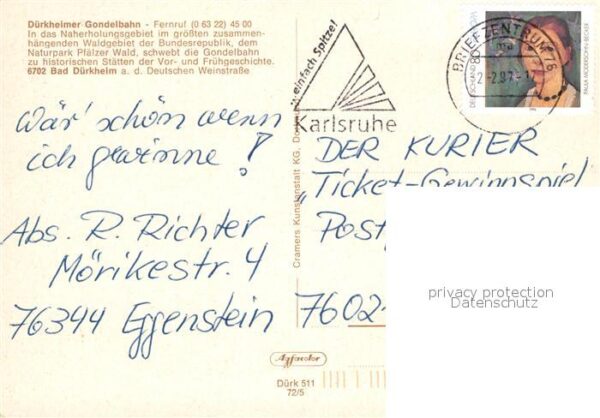 Dürkheimer Gondelbahn - Fernruf (0 63 22) 45 00
In das Naherholungsgebiet im größten zusammen-
hängenden Waldgebiet der Bundesrepublik, dem
Naturpark Pfälzer Wald, schwebt die Gondelbahn
zu historischen Stätten der Vor- und Frühgeschichte.
6702 Bad Dürkheim a. d. Deutschen Weinstraße
Wär' schön wenn
ich gewinne!
Abs. R. Richter
Mörikestr. 4
76344 Eggenstein
Cramers Kunstanstalt KG, Do
einfach Spitze!
Karlsruhe
BRIEFZENTRUM 76
DEUTSCHLAND 80
PAULA MODERSOHN-BECKER
DER KURIER
"Ticket-Gewinnspiel
Post
7602
privacy protection
Datenschutz
Agfacolor
Dürk 511
72/5